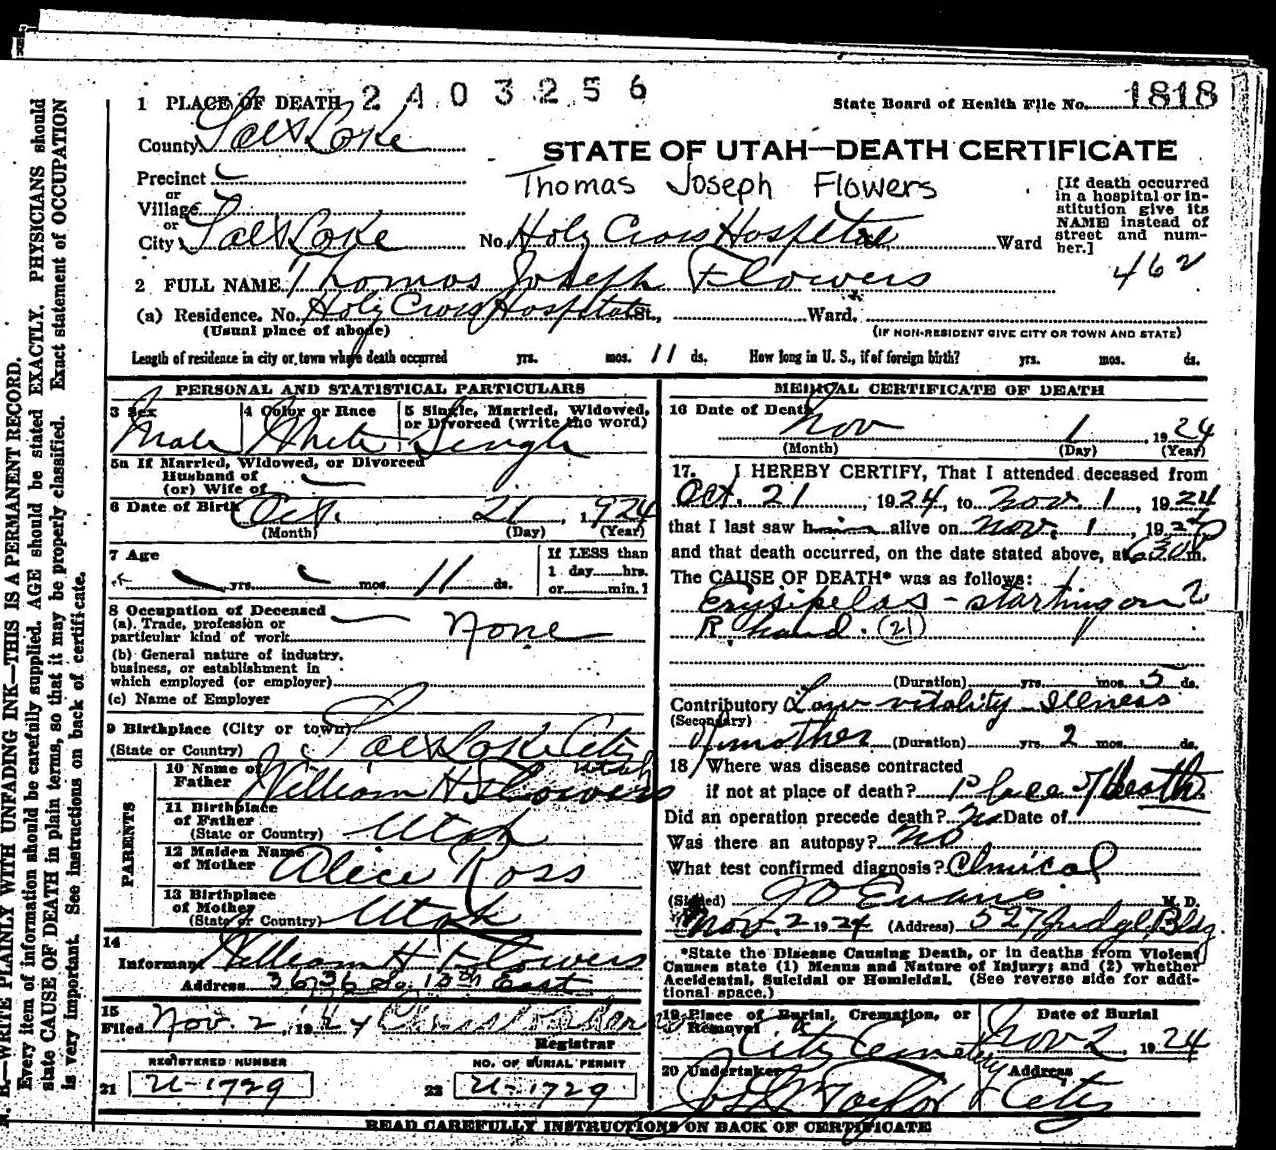 1 PLACE OF DEATH 2403256
State Board of Health File No. 1818
County Salt Lake
STATE OF UTAH—DEATH CERTIFICATE
Precinct
Thomas Joseph Flowers
or
Village
or
City Salt Lake No. Holy Cross Hospital Ward
[If death occurred
in a hospital or in-
stitution give its
NAME instead of
street and num-
ber.]
462
2 FULL NAME Thomas Joseph Flowers
(a) Residence. No. Holy Cross Hospital St., Ward.
(Usual place of abode)
(IF NON-RESIDENT GIVE CITY OR TOWN AND STATE)
Length of residence in city or town where death occurred yrs. mos. 11 ds. How long in U. S., if of foreign birth? yrs. mos. ds.
PERSONAL AND STATISTICAL PARTICULARS
3 Sex
Male
4 Color or Race
White
5 Single, Married, Widowed,
or Divorced (write the word)
Single
5a If Married, Widowed, or Divorced
Husband of
(or) Wife of
6 Date of Birth Oct. 21, 1924
(Month) (Day) (Year)
7 Age
yrs. mos. 11 ds.
If LESS than
1 day hrs.
or min.
8 Occupation of Deceased
(a) Trade, profession or
particular kind of work None
(b) General nature of industry,
business, or establishment in
which employed (or employer)
(c) Name of Employer
9 Birthplace (City or town) Salt Lake City
(State or Country) Utah
PARENTS
10 Name of
Father William H Flowers
11 Birthplace
of Father
(State or Country) Utah
12 Maiden Name
of Mother Alice Ross
13 Birthplace
of Mother
(State or Country) Utah
14
Informant William H Flowers
Address 3636 So. 15th East
15
Filed Nov. 2, 1924
Registrar
REGISTERED NUMBER
21 U-1729
NO. OF BURIAL PERMIT
22 U-1729
MEDICAL CERTIFICATE OF DEATH
16 Date of Death
Nov 1, 1924
(Month) (Day) (Year)
17. I HEREBY CERTIFY, That I attended deceased from
Oct. 21, 1924, to Nov. 1, 1924
that I last saw him alive on Nov. 1, 1924
and that death occurred, on the date stated above, at 630 P m.
The CAUSE OF DEATH* was as follows:
Erysipelas - starting on
R. hand. (21)
(Duration) yrs. mos. 5 ds.
Contributory Low vitality - Illness
(Secondary)
of mother (Duration) yrs. 2 mos. ds.
18 Where was disease contracted
if not at place of death? Place of Death
Did an operation precede death? No Date of
Was there an autopsy? No
What test confirmed diagnosis? Clinical
(Signed) Evans M. D.
Nov. 2 1924 (Address) 527 Judge Bldg.
*State the Disease Causing Death, or in deaths from Violent
Causes state (1) Means and Nature of Injury; and (2) whether
Accidental, Suicidal or Homicidal. (See reverse side for addi-
tional space.)
19 Place of Burial, Cremation, or
Removal
City Cemetery
Date of Burial
Nov 2, 1924
20 Undertaker
Jos Wm Taylor
Address
City
READ CAREFULLY INSTRUCTIONS ON BACK OF CERTIFICATE
N. B.—WRITE PLAINLY WITH UNFADING INK—THIS IS A PERMANENT RECORD.
Every item of information should be carefully supplied. AGE should be stated EXACTLY. PHYSICIANS should
state CAUSE OF DEATH in plain terms, so that it may be properly classified. Exact statement of OCCUPATION
is very important. See instructions on back of certificate.